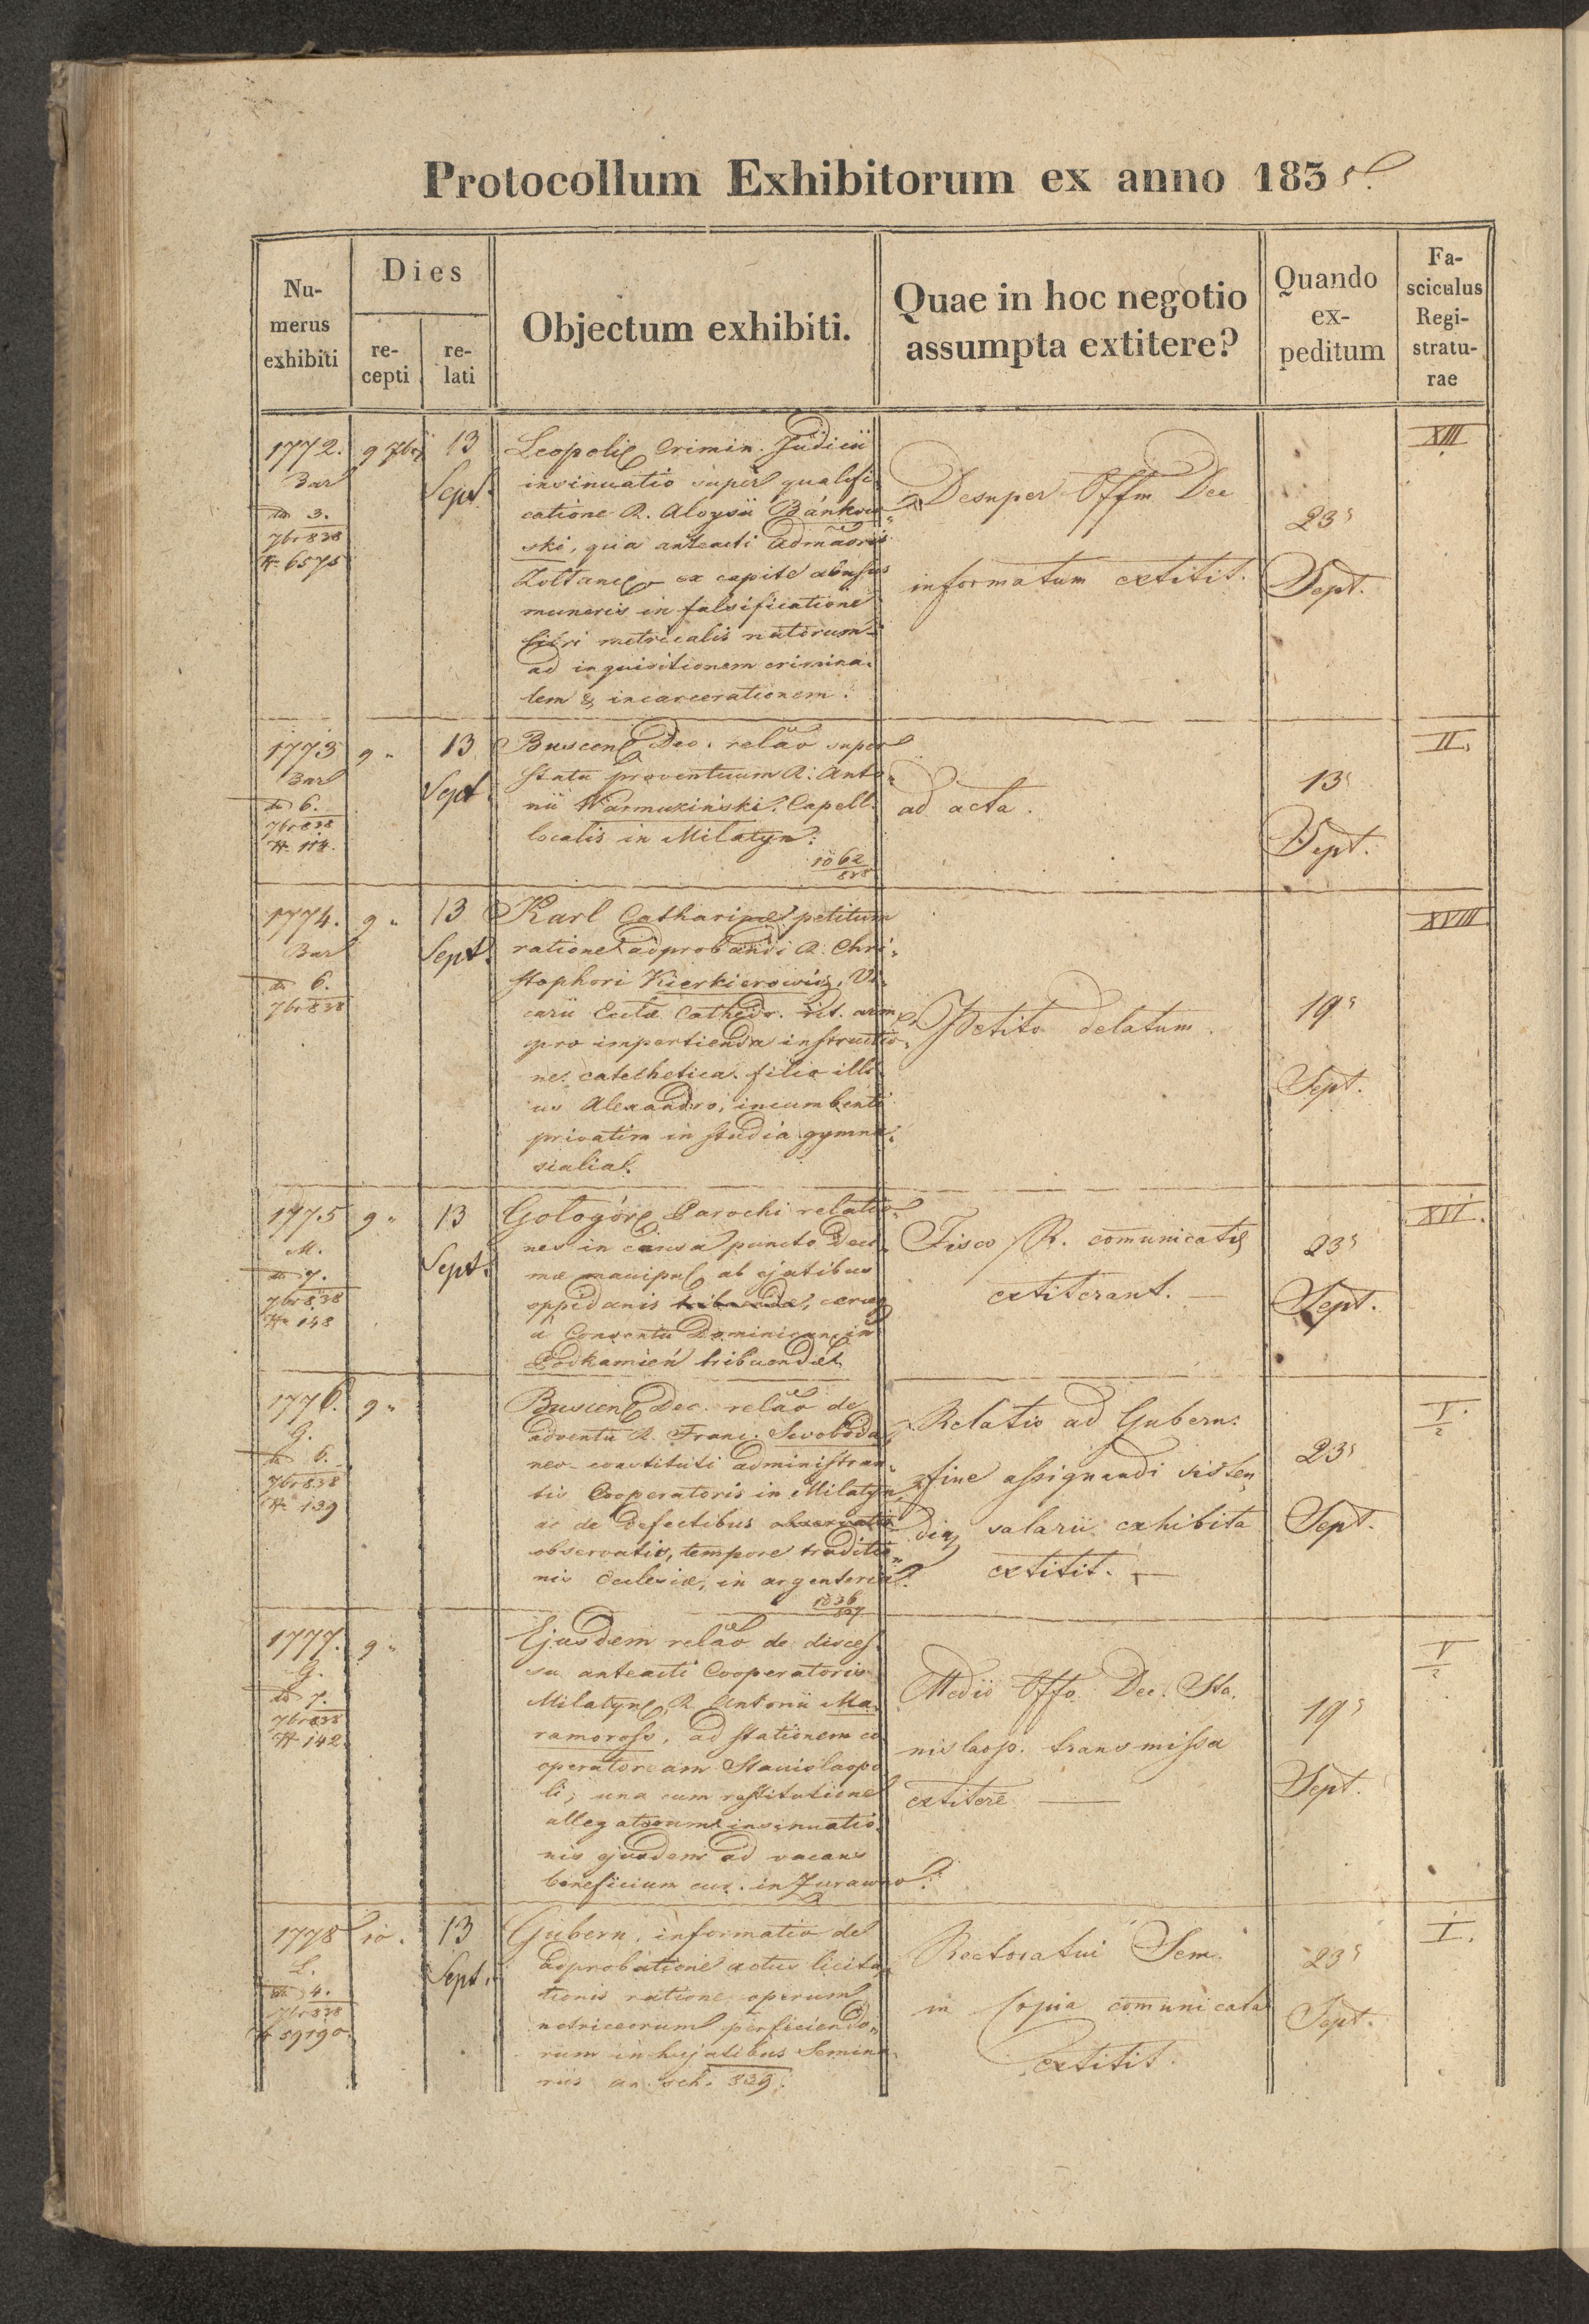 Protocollum Exhibitorum ex anno 183
Nu-
merus
exhibiti
Dies
re-
cepti
re-
lati
Objectum exhibiti.
Quae in hoc negotio
assumpta extitere?
Quando
ex-
peditum
Fa-
sciculus
Regi-
stratu-
rae
1772.
Bar
3.
7br 838
N. 6575
9 7br
13
Sept.
Leopol. Crimin. Judicii
insinuatio super qualifi-
catione R. Aloysii Bánkow-
ski, qua anteacti Admãoris
Zoltanc. ex capite abusus
muneris in falsificatione
libri metricalis natorum
ad inquisitionem crimina-
lem & incarcerationem.
Desuper Offm Dec
informatum extitit.
23
Sept.
XIII
1773
Bar
6.
7br 838
N. 114.
9 "
13
Sept.
Buscens. Dec. relão super
statu proventuum R. Anto-
nii Warmuziński. Capell.
localis in Milatyn.
1062
838
ad acta.
13
Sept.
II.
1774.
Bar
6.
7br 838
9 "
13
Sept.
Karl Catharinae petitum
ratione adprobandi R. Chri-
stophori Kierkierowicz, Vi-
carii Ecclae Cathedr. rit. arm
pro impertienda instructio-
ne catechetica filio illi-
us Alexandro, incumbenti
privatim in studia gymna-
sialia.
Petito delatum.
19
Sept.
XVIII
1775
M.
7.
7br 838
N. 148
9 "
13
Sept.
Gologór. Parochi relatio-
nes in causa puncto Deci-
mae manipul. ab ejatibus
oppidanis tribuenda,
a Conventu Dominican. in
Podkamień tribuendae.
Fisco R. comunicatae
extiterant. —
23
Sept.
XII.
1776.
G.
6.
7br 838
N. 139
9 "
Buscens. Dec. relão de
adventu R. Franc. Swoboda
neo-constituti administran-
tis Cooperatoris in Milatyn
ac de defectibus observatis
observatis, tempore traditio-
nis Ecclesiae, in argenteria.
1036
837
Relatio ad Gubern.
fine assignandi sisten-
di salarii exhibita
extitit. —
23
Sept.
I.
2
1777.
G.
7.
7br 838
N 142
9 "
Ejusdem relão de disces-
su anteacti Cooperatoris
Milatyn. R. Antonii Ma-
ramoross, ad stationem co-
operatoream Stanislaopo-
li, una cum restitutione
allegatorum insinuatio-
nis ejusdem ad vacans
beneficium cur. in Zurawno.
Medio Offo Dec. Sta-
nislaop. transmissa
extitere —
19
Sept.
I
2
1778
L.
4.
7br 838
N 59190.
10.
13
Sept.
Gubern. informatio de
adprobatione actus licita-
tionis ratione operum
perficiendo-
rum in hujatibus Semina-
riis an. sch. 839.
Rectoratui Sem.
in Copia comunicata
extitit.
23
Sept.
I.